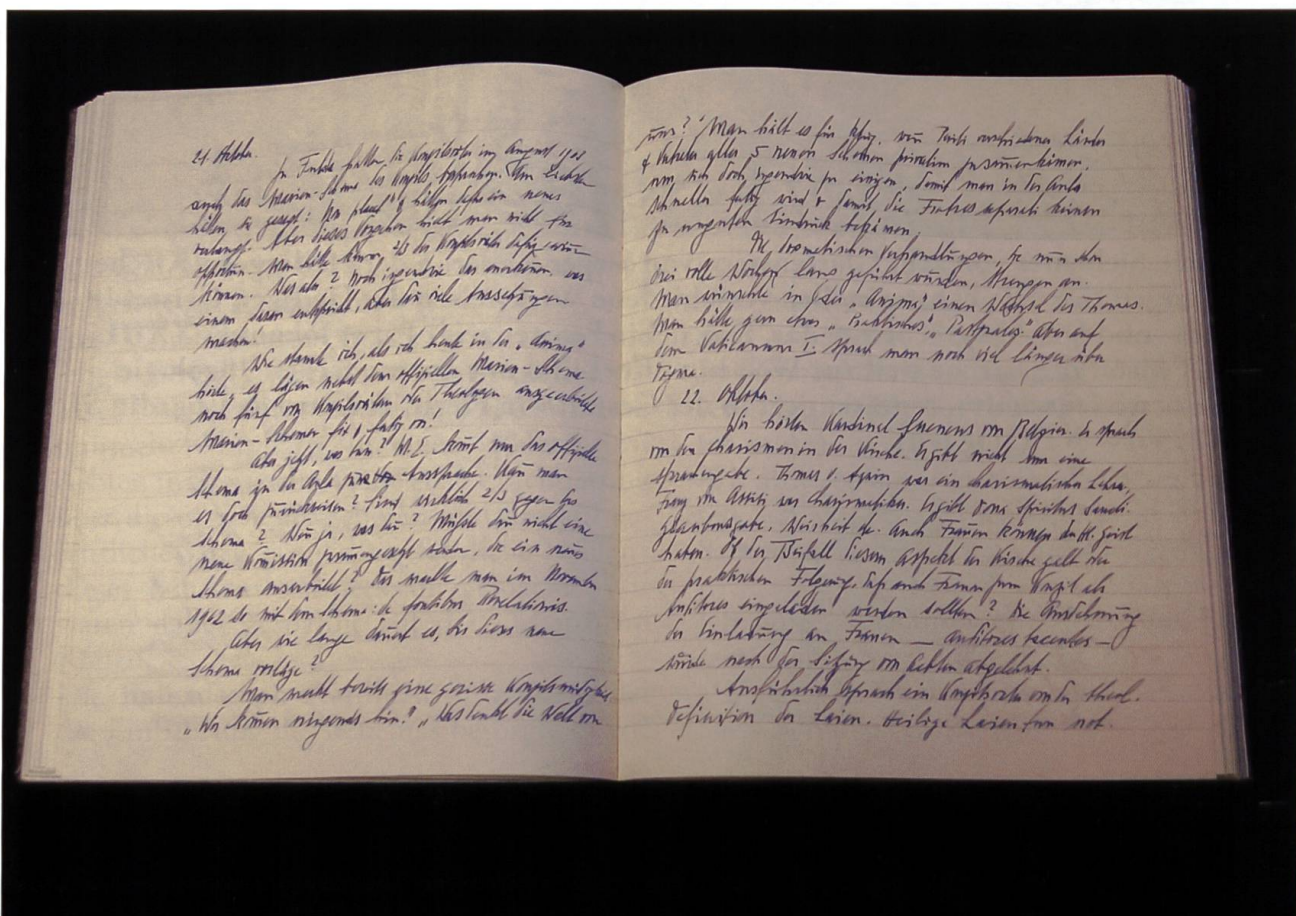 21. Oktober.
In Fulda hatten die Konzilsväter im August 1963
auch das Marien-Schema des Konzils
hätten sie gesagt: Non placet & hätten dafür ein neues
verlangt. Aber dieses Vorgehen hielt man nicht für
opportun. Man hätte
können. Was also? Noch irgendwie das anerkennen, was
einem daran entspricht, aber dann viele Aussetzungen
machen!
Wie staunte ich, als ich heute in der „Anima"
hörte, es lägen nebst dem offiziellen Marien-Schema
noch fünf von Konzilsvätern oder Theologen ausgearbeitete
Marien-Schemen fix & fertig vor!
Aber jetzt, was tun? M. E. kommt nun das offizielle
Schema in der Aula zur Aussprache. Kann man
es doch zurückweisen? Sind wirklich 2/3 gegen das
Schema? Nun ja, was dann? Müsste dann nicht eine
neue Komission zusammengesetzt werden, die ein neues
Schema ausarbeitet? Das machte man im November
1962 so mit dem Schema: de fontibus Revelationis.
Aber wie lange dauert es, bis dieses neue
Schema vorläge?
Man merkt bereits eine gewisse Konzilsmüdigkeit.
„Wir kommen nirgends hin!" „Was denkt die Welt von
uns?" Man hält es für klug, wenn Periti verschiedener Länder
& Vertreter aller 5 neuen Schemen privatim zusammenkämen,
um sich doch irgendwie zu einigen, damit man in der Aula
schneller fertig wird & damit die Fratres separati keinen
zu negativen Eindruck bekämen.
Die dogmatischen Verhandlungen, die nun schon
drei volle Wochen lang geführt wurden, strengen an.
Man wünschte in der „Anima" einen Wechsel des Themas.
Man hätte gern etwas „Praktisches", „Pastorales". Aber auf
dem Vaticanum I. sprach man noch viel länger über
Dogma.
22. Oktober.
Wir hörten Kardinal Suenens von Belgien. Er sprach
von den Charismen in der Kirche. Es gibt nicht nur eine
Sprachengabe. Thomas v. Aquin war ein charismatischer Lehrer,
Franz von Assisi war Charismatiker. Es gibt dona Spiritus Sancti:
Glaubensgabe, Weisheit etc. Auch Frauen können den Hl. Geist
haben. Ob der Beifall diesem Aspekt der Kirche galt oder
der praktischen Folgerung, dass auch Frauen zum Konzil als
Auditores eingeladen werden sollten? Die Ausdehnung
der Einladung an Frauen — auditores tacentes —
wurde nach der Sitzung von Vielen abgelehnt.
Ausführlich sprach ein Konzilsvater von der theol.
Definition der Laien. Heilige Laien tun not.